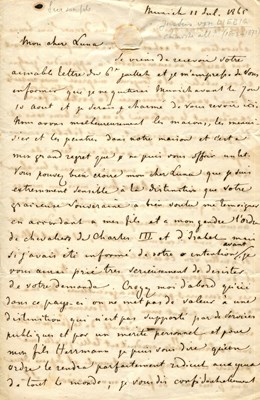 Munich 11 Jul. 1865
Mon cher Luna
Je viens de recevoir votre
aimable lettre du 6 juillet et je m'empresse de vous
informer que je ne quitterai Munich avant le 7 ou
10 aout et je serai charmé de vous revoir ici.
Nous avons malheureusement les maçons, les menui
siers et les peintres dans notre maison et c'est a
mon grand regret que je ne puis vous offrir
Vous pouvez bien croire mon cher Luna que je suis
extremement sensible à la distinction que votre
gracieuse Souveraine a bien voulu me temoigner
en accordant a mes fils et a mon gendre l'Ordre
de chevaliers de Charles III et d'Isabel, mais
si j'avais été informé de votre intention avant, je
vous aurai prié très serieusement de desister
de votre demande. Croyez moi d'abord qu'ici
dans ce pays ci on ne met pas de valeur à une
distinction qui n'est pas supporté par des services
publiques et par un mérite personnel et pour
mon fils Herrmann je puis vous dire qu'un
ordre le rendra parfaitement ridicul aux yeux
de tout le monde je vous dis confidentiellement